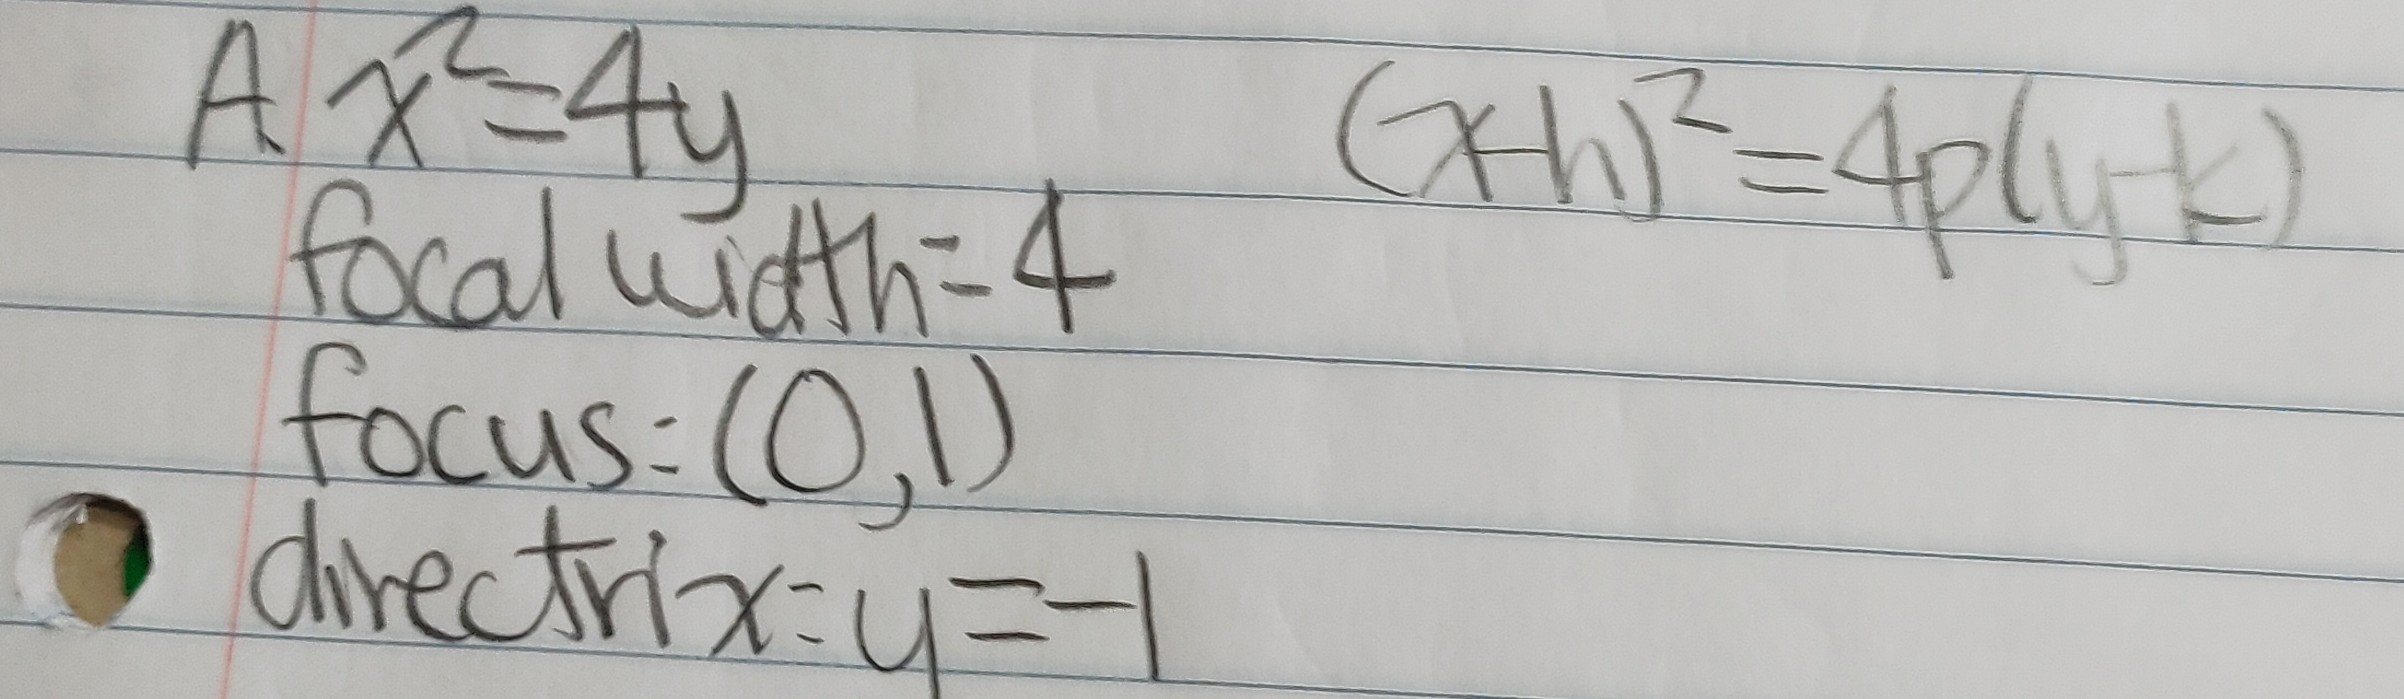 A x²=4y (x-h)²=4p(y-k)
focal width=4
focus=(0,1)
directrix=y=-1